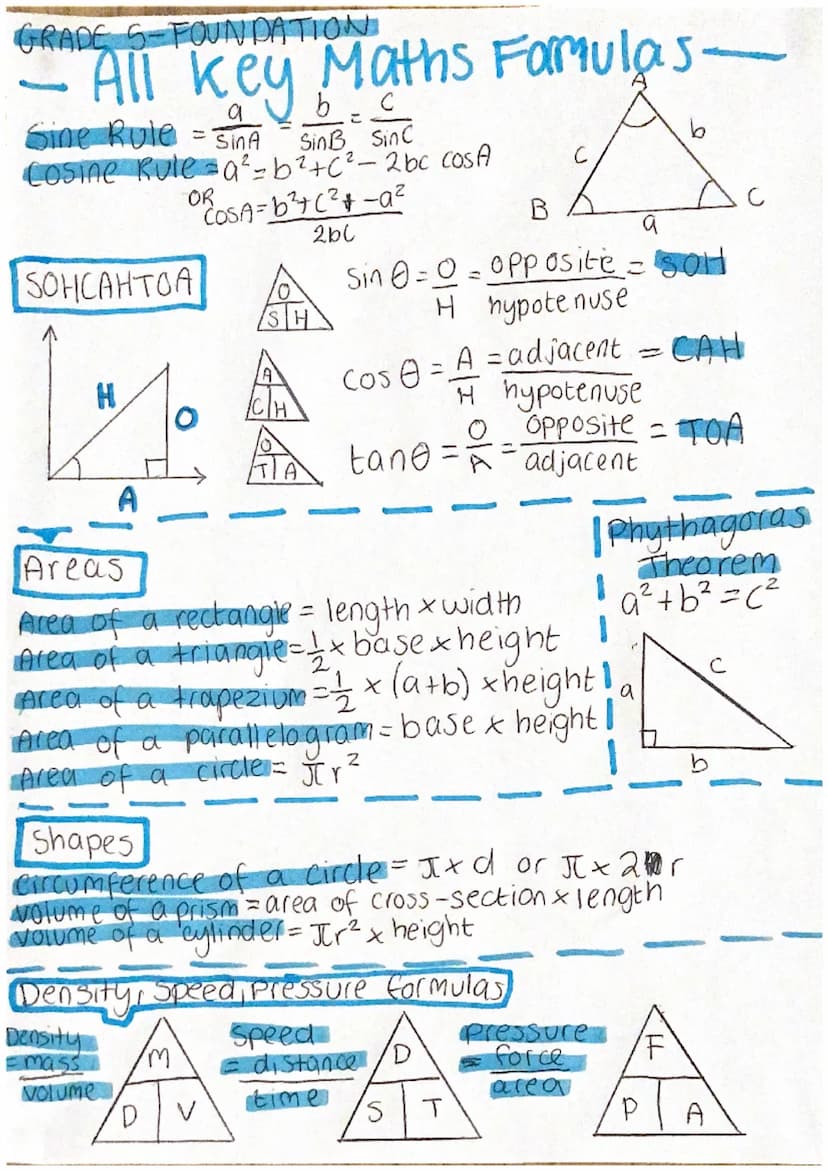 GRADE 5-FOUNDATION
All Key Maths Famulas
Sine Rule = a/sinA = b/sinB = c/sinC
Cosine Rule = a² = b²+c² - 2bc cosA
OR cosA = b²+c² -a²/2bc
A
c b
B a C
SOHCAHTOA
O
S H
sinθ = O/H = opposite/hypotenuse = SOH
A
C H
cosθ = A/H = adjacent/hypotenuse = CAH
O
T A
tanθ = O/A = opposite/adjacent = TOA
H
O
A
Areas
Area of a rectangle = length x width
Area of a triangle = 1/2 x base x height
Area of a trapezium = 1/2 x (a+b) x height
Area of a parallelogram = base x height
Area of a circle = πr²
Phythagoras
Theorem
a²+b² = c²
c
a
b
Shapes
Circumference of a circle = π x d or π x 2 r
Volume of a prism = area of cross-section x length
Volume of a cylinder = πr² x height
Density, Speed, Pressure formulas
Density
= mass
volume
M
D V
Speed
= distance
time
D
S T
Pressure
= force
area
F
P A